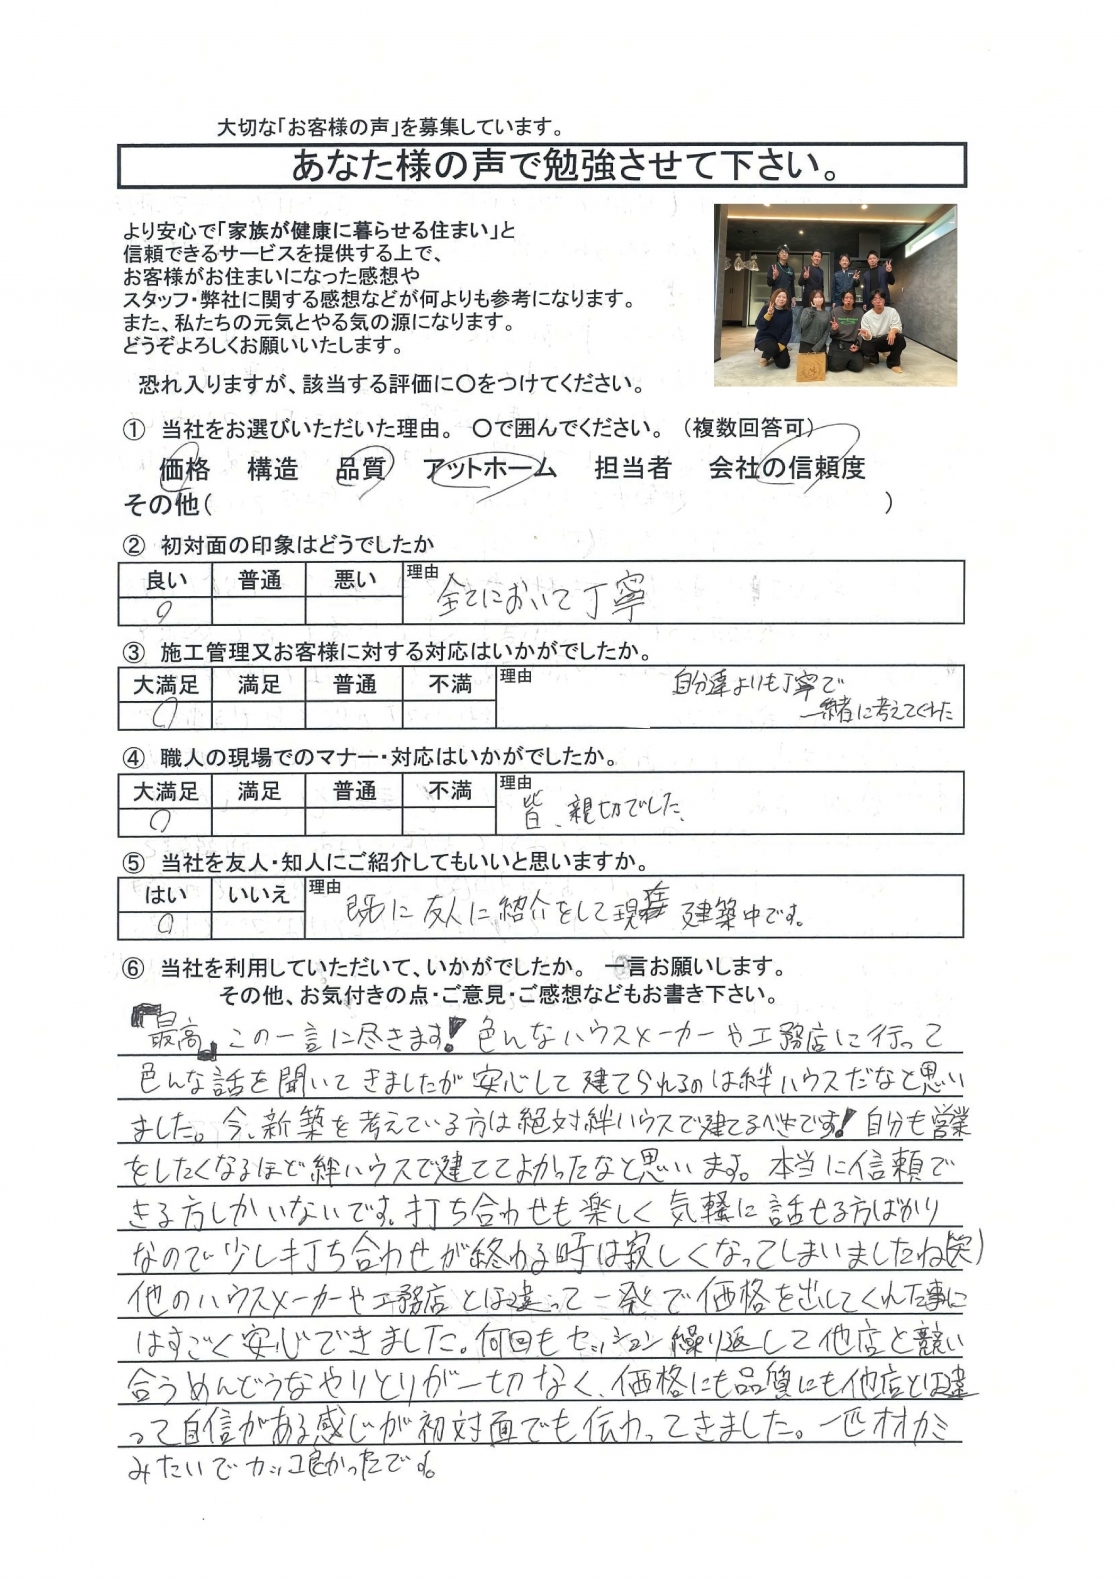 大切な「お客様の声」を募集しています。
あなた様の声で勉強させて下さい。
より安心で「家族が健康に暮らせる住まい」と
信頼できるサービスを提供する上で、
お客様がお住まいになった感想や
スタッフ・弊社に関する感想などが何よりも参考になります。
また、私たちの元気とやる気の源になります。
どうぞよろしくお願いいたします。
恐れ入りますが、該当する評価に〇をつけてください。
① 当社をお選びいただいた理由。 〇で囲んでください。 （複数回答可）
価格 構造 品質 アットホーム 担当者 会社の信頼度
その他( )
② 初対面の印象はどうでしたか
良い 普通 悪い 理由 全てにおいて丁寧
③ 施工管理又お客様に対する対応はいかがでしたか。
大満足 満足 普通 不満 理由 自分達よりも丁寧で
一緒に考えてくれた
④ 職人の現場でのマナー・対応はいかがでしたか。
大満足 満足 普通 不満 理由 皆、親切でした、
⑤ 当社を友人・知人にご紹介してもいいと思いますか。
はい いいえ 理由 既に友人に紹介をして現在 建築中です。
⑥ 当社を利用していただいて、いかがでしたか。 一言お願いします。
その他、お気付きの点・ご意見・ご感想などもお書き下さい。
『最高』この一言に尽きます! 色んなハウスメーカーや工務店に行って
色んな話を聞いてきましたが安心して建てられるのは絆ハウスだなと思い
ました。今、新築を考えている方は絶対絆ハウスで建てるべきです! 自分も営業
をしたくなるほど絆ハウスで建ててよかったなと思います。本当に信頼で
きる方しかいないです。打ち合わせも楽しく気軽に話せる方ばかり
なので少し打ち合わせが終わる時は寂しくなってしまいましたね(笑)
他のハウスメーカーや工務店とは違って一発で価格を出してくれた事に
はすごく安心できました。何回もセッション繰り返して他店と競い
合うめんどうなやりとりが一切なく、価格にも品質にも他店とは違
って自信がある感じが初対面でも伝わってきました。一匹オオカミ
みたいでカッコ良かったです。